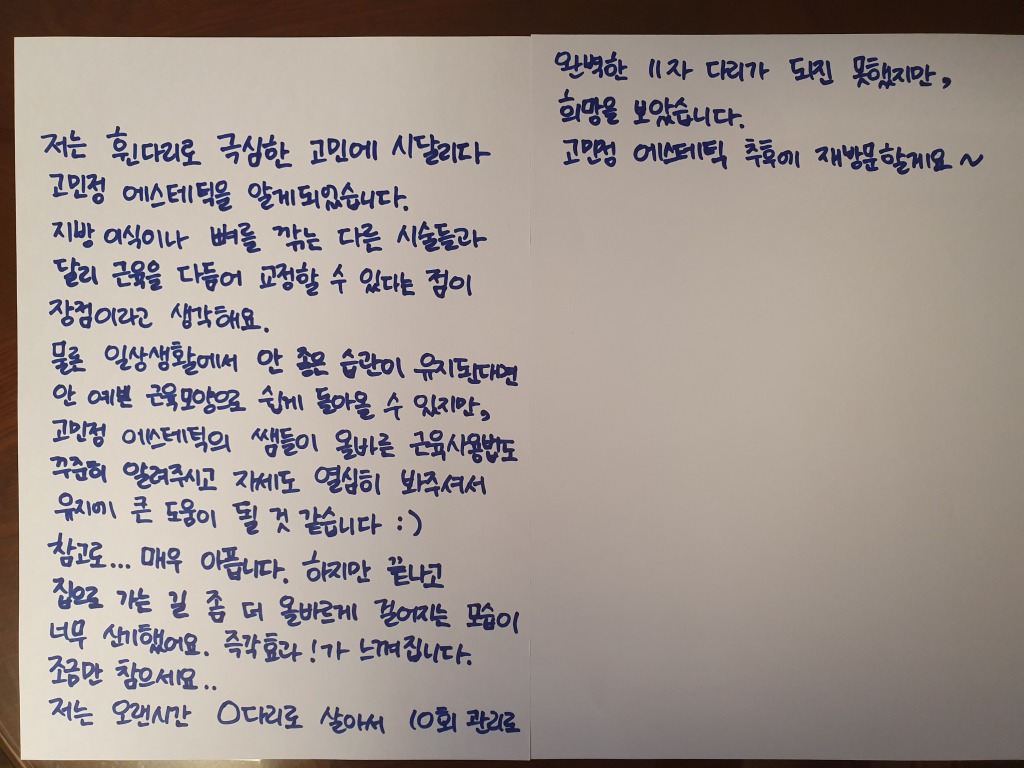 저는 휜다리로 극심한 고민에 시달리다
고민정 에스테틱을 알게되었습니다.
지방 이식이나 뼈를 깎는 다른 시술들과
달리 근육을 다듬어 교정할 수 있다는 점이
장점이라고 생각해요.
물론 일상생활에서 안 좋은 습관이 유지된다면
안 예쁜 근육모양으로 쉽게 돌아올 수 있지만,
고민정 에스테틱의 쌤들이 올바른 근육사용법도
꾸준히 알려주시고 자세도 열심히 봐주셔서
유지에 큰 도움이 될 것 같습니다 :)
참고로... 매우 아픕니다. 하지만 끝나고
집으로 가는 길 좀 더 올바르게 걸어지는 모습이
너무 신기했어요. 즉각효과!가 느껴집니다.
조금만 참으세요..
저는 오랜시간 O다리로 살아서 10회 관리로
완벽한 11자 다리가 되진 못했지만,
희망을 보았습니다.
고민정 에스테틱 추후에 재방문할게요~